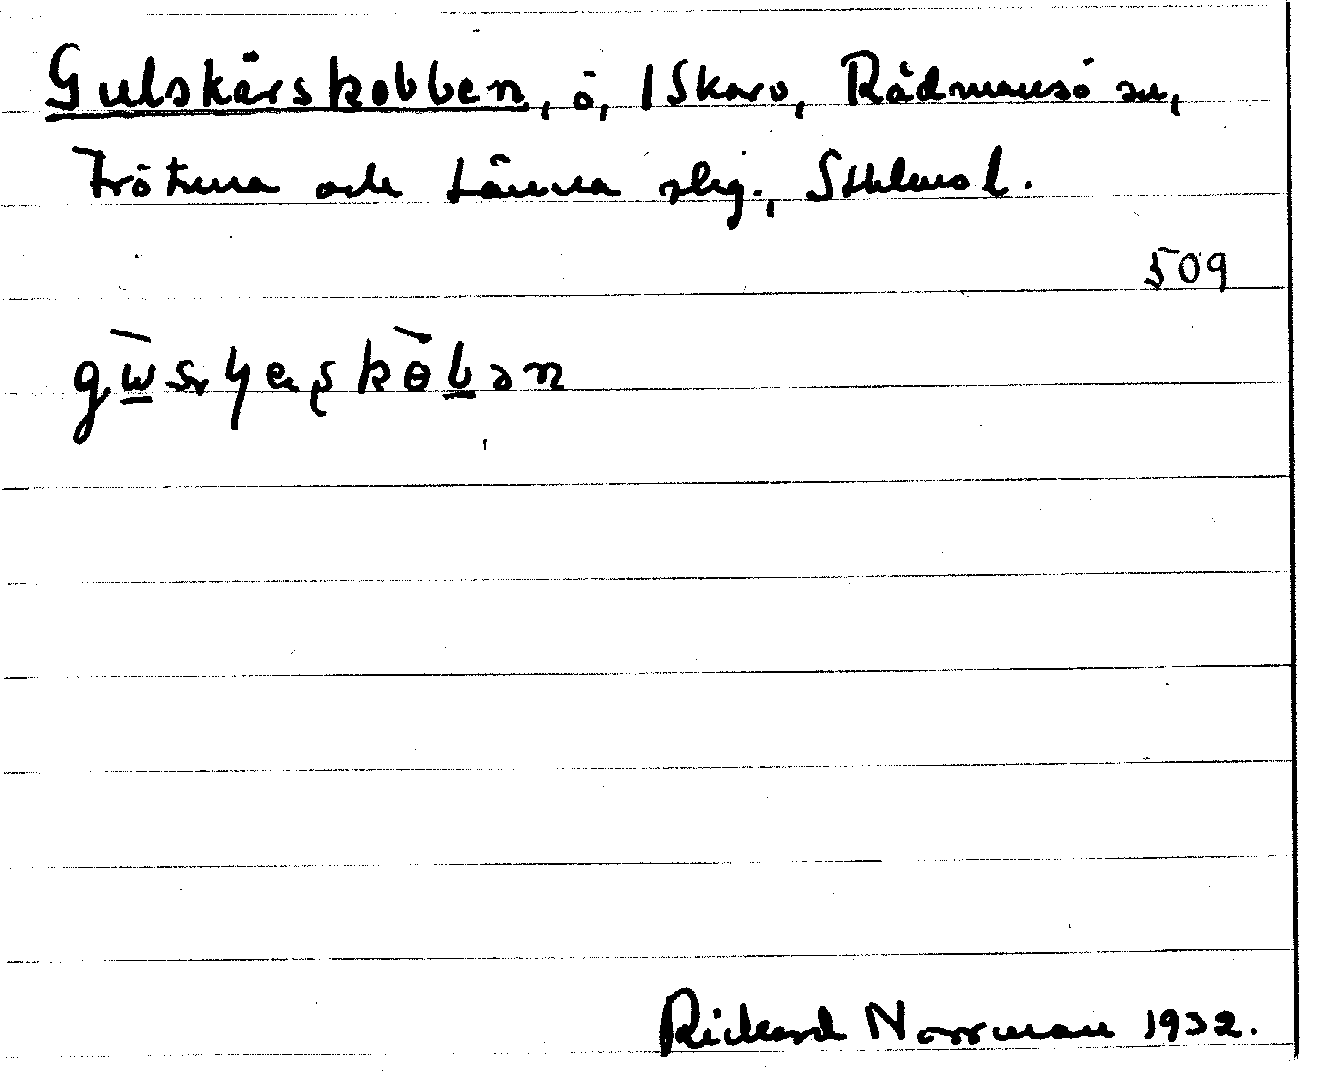 Gulskärskobben, ö, 1 Skarö, Rådmansö sn,
Frötuna och Länna slg., Sthlms l.
509
Rickard Norrman 1932.